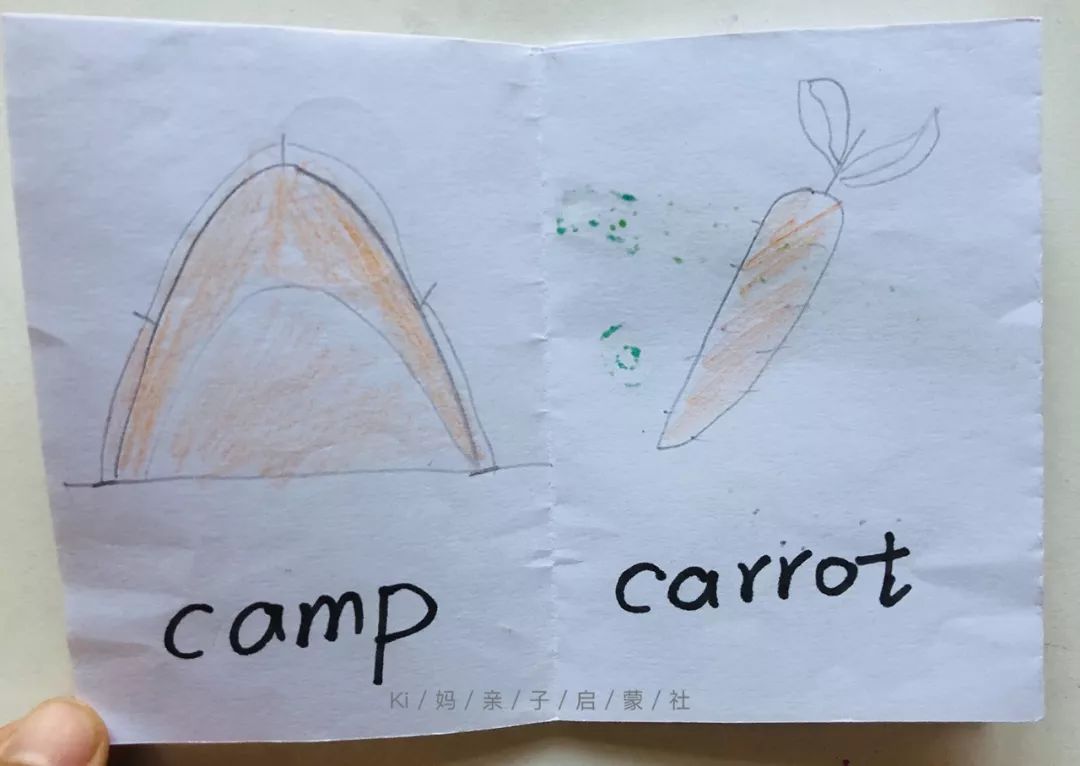 camp
carrot
Ki/妈/亲/子/启/蒙/社